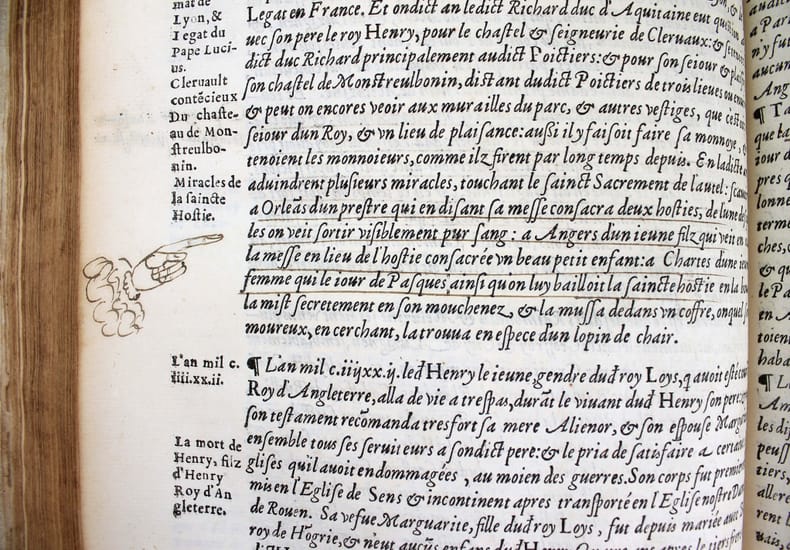 mat de
Lyon, &
Legat du
Pape Luci-
us.
Cleruault
contécieux
Du chaste-
au de Mon-
streulbo-
nin.
Miracles de
la saincte
Hostie.
L'an mil c.
iiii.xx.ii.
La mort de
Henry, filz
d'Henry
Roy d'An
gleterre.
Legat en France. Et ondict an ledict Richard duc d'Aquitaine eut
uec son pere le roy Henry, pour le chastel & seigneurie de Cleruaux: &
dict duc Richard principalement audict Poictiers: & pour son seiour &
son chastel de Monstreulbonin, distant dudict Poictiers de trois lieues ou
& peut on encores veoir aux murailles du parc, & autres vestiges, que
seiour dun Roy, & vn lieu de plaisance: aussi il y faisoit faire sa monnoye,
tenoient les monnoieurs, comme ilz firent par long temps depuis. En
aduindrent plusieurs miracles, touchant le sainct Sacrement de l'autel:
a Orleãs d'un prestre qui en disant sa messe consacra deux hosties, de lune
les on veit sortir visiblement pur sang: a Angers d'un ieune filz qui veit en
la messe en lieu de l'hostie consacrée vn beau petit enfant: a Chartes d'une
femme qui le iour de Pasques ainsi qu on luy bailloit la saincte hostie en la
la mist secretement en son mouchenez, & la mussa dedans vn coffre, onquel
moureux, en cerchant, la trouua en espece d'un lopin de chair.
¶ L'an mil c.iiijxx.ij. led Henry le ieune, gendre dud roy Loys, q auoit esté
Roy d'Angleterre, alla de vie a trespas, durãt le viuant dud Henry son pere:
son testament recõmanda tresfort sa mere Alienor, & son espouse
ensemble tous ses seruiteurs a sondict pere: & le pria de satisfaire a
glises qu il auoit endommagées, au moien des guerres. Son corps fut
mis en l'Eglise de Sens & incontinent apres transporté en l'Eglise nostre
de Rouen. Sa vefue Marguarite, fille dud roy Loys, fut depuis mariée
roy de Hõgrie, & n'eut aucũs